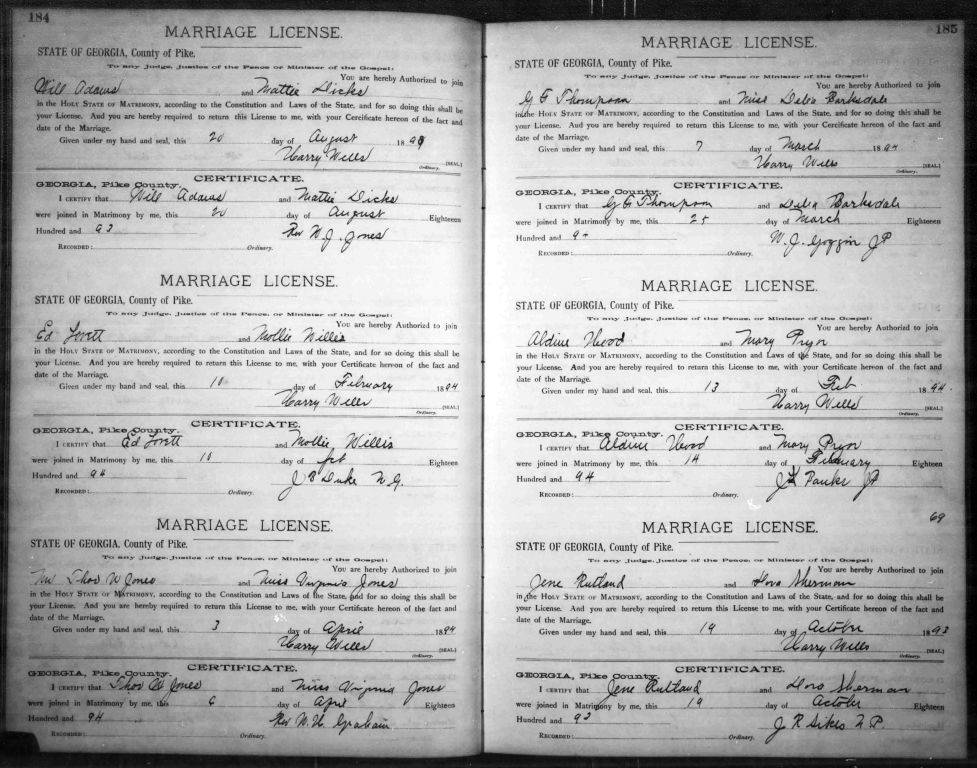 184
MARRIAGE LICENSE.
STATE OF GEORGIA, County of Pike.
To any Judge, Justice of the Peace or Minister of the Gospel:
You are hereby Authorized to join
Will Adams and Mattie Dicks
in the HOLY STATE OF MATRIMONY, according to the Constitution and Laws of the State, and for so doing this shall be
your License. And you are hereby required to return this License to me, with your Certificate hereon of the fact and
date of the Marriage.
Given under my hand and seal, this 20 day of August 1893
Harry Wells [SEAL.]
Ordinary.
CERTIFICATE.
GEORGIA, Pike County.
I CERTIFY that Will Adams and Mattie Dicks
were joined in Matrimony by me, this 20 day of August Eighteen
Hundred and 93 Rev W. J. Jones
RECORDED: Ordinary.
MARRIAGE LICENSE.
STATE OF GEORGIA, County of Pike.
To any Judge, Justice of the Peace, or Minister of the Gospel:
You are hereby Authorized to join
Ed Lovett Mollie Willis
in the HOLY STATE OF MATRIMONY, according to the Constitution and Laws of the State, and for so doing this shall be
your License. And you are hereby required to return this License to me, with your Certificate hereon of the fact and
date of the Marriage.
Given under my hand and seal, this 10 day of February 1894
Harry Wells [SEAL.]
Ordinary.
CERTIFICATE.
GEORGIA, Pike County.
I CERTIFY that Ed Lovett and Mollie Willis
were joined in Matrimony by me, this 10 day of Eighteen
Hundred and 94 J B Duke
RECORDED: Ordinary.
MARRIAGE LICENSE.
STATE OF GEORGIA, County of Pike.
To any Judge, Justice of the Peace, or Minister of the Gospel:
You are hereby Authorized to join
Mr Thos W Jones and Miss Virginia Jones
in the HOLY STATE OF MATRIMONY, according to the Constitution and Laws of the State, and for so doing this shall be
your License. And you are hereby required to return this License to me, with your Certificate hereon of the fact and
date of the Marriage.
Given under my hand and seal, this 3 day of April 1894
Harry Wells [SEAL.]
Ordinary.
CERTIFICATE.
GEORGIA, Pike County.
I CERTIFY that Thos W Jones and Miss Virginia Jones
were joined in Matrimony by me, this 6 day of April Eighteen
Hundred and 94 Rev W. H. Graham
RECORDED: Ordinary.
185
MARRIAGE LICENSE.
STATE OF GEORGIA, County of Pike.
To any Judge, Justice of the Peace or Minister of the Gospel:
You are hereby Authorized to join
Thompson and Miss Delia Barksdale
in the HOLY STATE OF MATRIMONY, according to the Constitution and Laws of the State, and for so doing this shall be
your License. And you are hereby required to return this License to me, with your Cercificate hereon of the fact and
date of the Marriage.
Given under my hand and seal, this 7 day of March 1894
Harry Wells [SEAL.]
Ordinary.
CERTIFICATE.
GEORGIA, Pike County.
I CERTIFY that Thompson and Delia Barksdale
were joined in Matrimony by me, this 25 day of March Eighteen
Hundred and 94 W. J. Goggin JP
RECORDED: Ordinary.
MARRIAGE LICENSE.
STATE OF GEORGIA, County of Pike.
To any Judge, Justice of the Peace, or Minister of the Gospel:
You are hereby Authorized to join
Aldine Wood and Mary Pryor
in the HOLY STATE OF MATRIMONY, according to the Constitution and Laws of the State, and for so doing this shall be
your License. And you are hereby required to return this License to me, with your Certificate hereon of the fact and
date of the Marriage.
Given under my hand and seal, this 13 day of Feb 1894.
Harry Wells [SEAL.]
Ordinary.
CERTIFICATE.
GEORGIA, Pike County.
I CERTIFY that Aldine Wood and Mary Pryor
were joined in Matrimony by me, this 14 day of February Eighteen
Hundred and 94 JP
RECORDED: Ordinary.
69
MARRIAGE LICENSE.
STATE OF GEORGIA, County of Pike.
To any Judge, Justice of the Peace, or Minister of the Gospel:
You are hereby Authorized to join
Jene Rutland and Sherman
in the HOLY STATE OF MATRIMONY, according to the Constitution and Laws of the State, and for so doing this shall be
your License. And you are hereby required to return this License to me, with your Certificate hereon of the fact and
date of the Marriage.
Given under my hand and seal, this 19 day of Octobr 1893
Harry Wells [SEAL.]
Ordinary.
CERTIFICATE.
GEORGIA, Pike County.
I CERTIFY that Jene Rutland and Sherman
were joined in Matrimony by me, this 19 day of Octobr Eighteen
Hundred and 93 J R Sikes N P.
RECORDED: Ordinary.